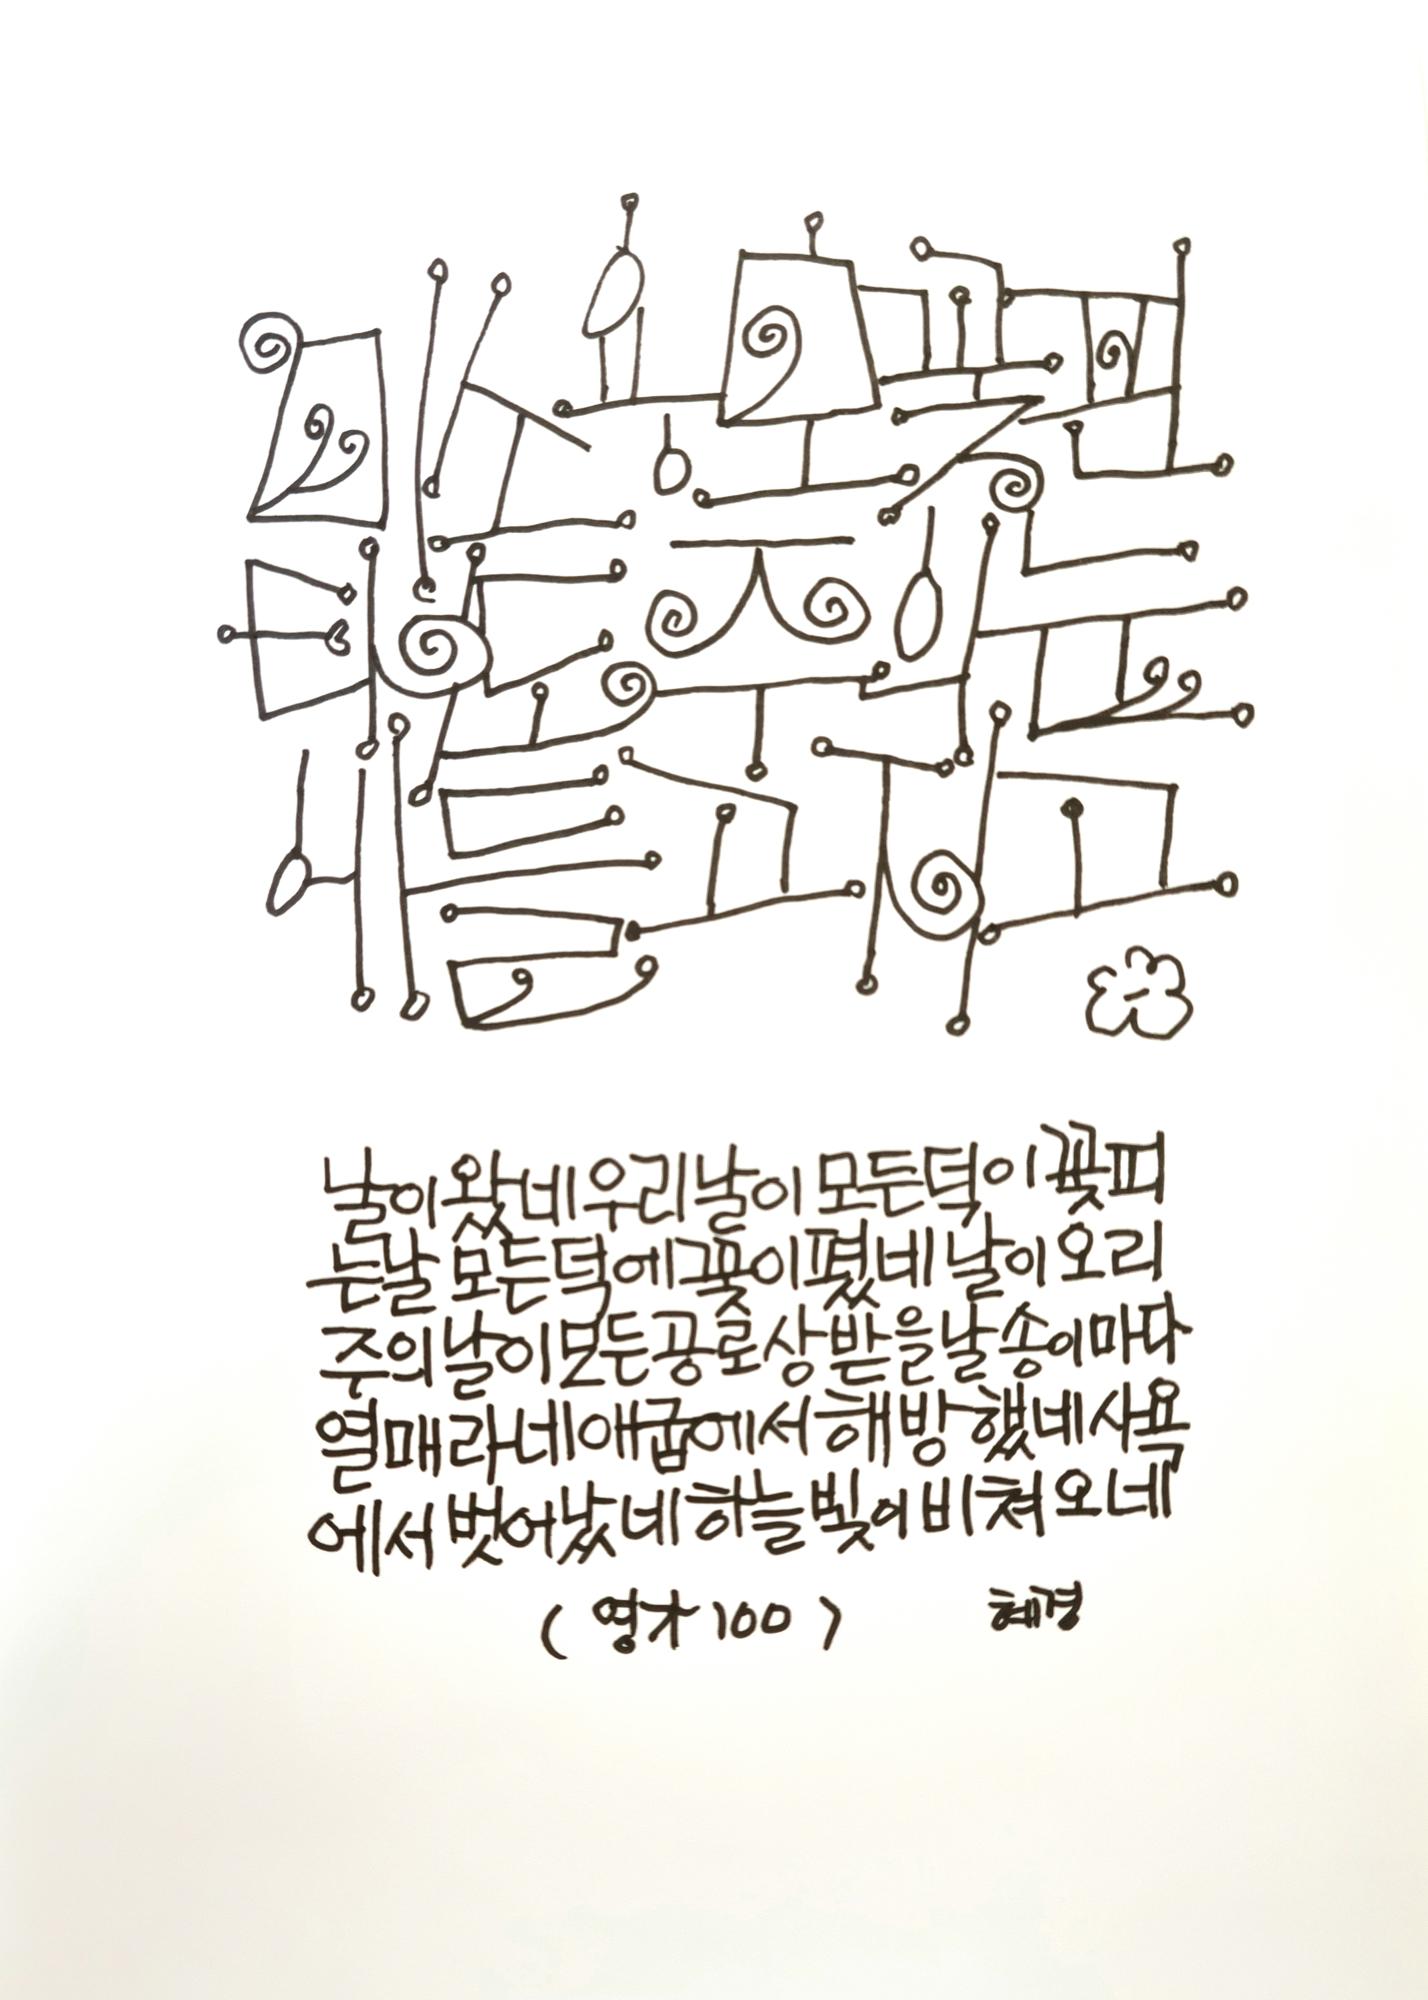 날이 왔네 우리 날이 모든 덕이 꽃피
는 날 모든 덕에 꽃이 폈네 날이 오리
주의 날이 모든 공로 상 받을 날 송이마다
열매라네 애굽에서 해방했네 사욕
에서 벗어났네 하늘 빛이 비쳐오네
(영가 100) 혜경